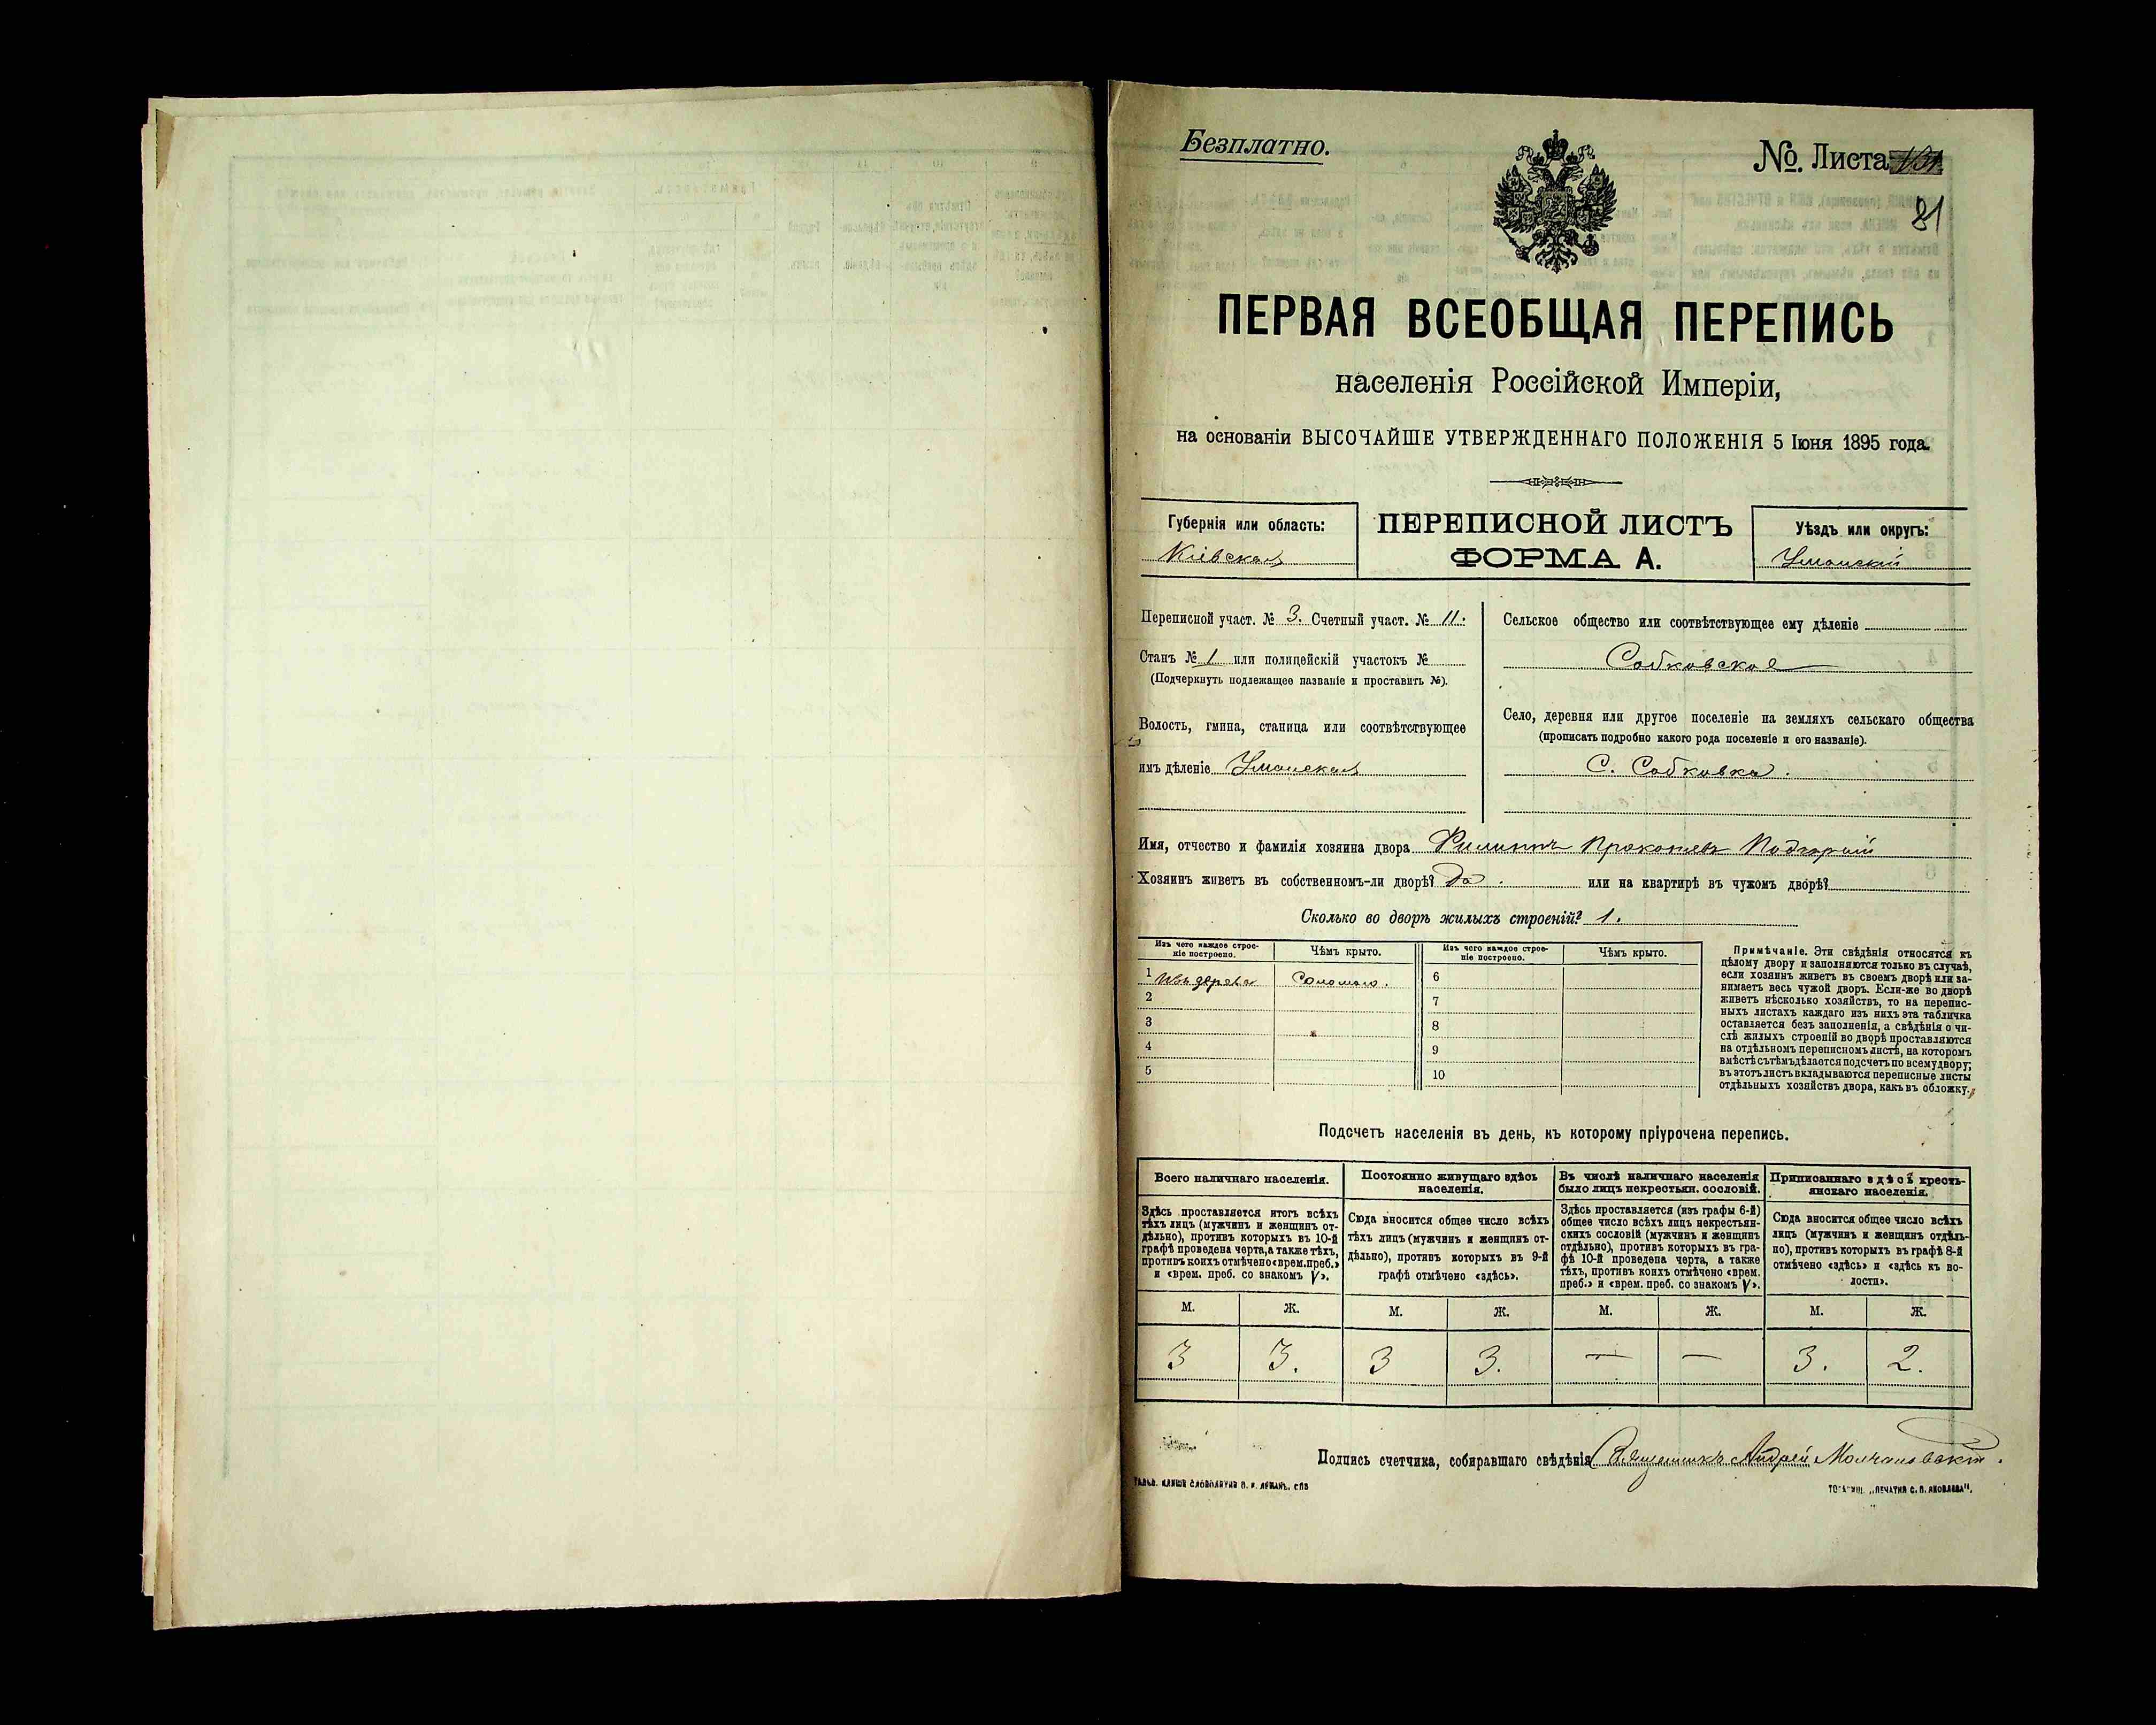 Безплатно.
№. Листа
81
ПЕРВАЯ ВСЕОБЩАЯ ПЕРЕПИСЬ
населенія Россійской Имперіи,
на основаніи ВЫСОЧАЙШЕ УТВЕРЖДЕННАГО ПОЛОЖЕНІЯ 5 Іюня 1895 года.
Губернія или область:
Кіевская
ПЕРЕПИСНОЙ ЛИСТЪ
ФОРМА А.
Уѣздъ или округъ:
Уманскій
Переписной участ. № 3. Счетный участ. № 11.
Станъ № 1 или полицейскій участокъ №
(Подчеркнуть подлежащее названіе и проставить №).
Волость, гмина, станица или соотвѣтствующее
имъ дѣленіе Уманская
Сельское общество или соотвѣтствующее ему дѣленіе
Собковское
Село, деревня или другое поселеніе на земляхъ сельскаго общества
(прописать подробно какого рода поселеніе и его названіе).
С. Собковка.
Имя, отчество и фамилія хозяина двора Филиппъ Прокопьевъ Подгорній
Хозяинъ живетъ въ собственномъ-ли дворѣ? Да. или на квартирѣ въ чужомъ дворѣ?
Сколько во дворѣ жилыхъ строеній? 1.
Изъ чего каждое строе-
ніе построено.
Чѣмъ крыто.
Изъ чего каждое строе-
ніе построено.
Чѣмъ крыто.
1 Изъ дерева Соломою. 6
2 7
3 8
4 9
5 10
Примѣчаніе. Эти свѣдѣнія относятся къ
цѣлому двору и заполняются только въ случаѣ,
если хозяинъ живетъ въ своемъ дворѣ или за-
нимаетъ весь чужой дворъ. Если-же во дворѣ
живетъ нѣсколько хозяйствъ, то на перепис-
ныхъ листахъ каждаго изъ нихъ эта табличка
оставляется безъ заполненія, а свѣдѣнія о чи-
слѣ жилыхъ строеній во дворѣ проставляются
на отдѣльномъ переписномъ листѣ, на которомъ
вмѣстѣ съ тѣмъ дѣлается подсчетъ по всему двору;
въ этотъ листъ вкладываются переписные листы
отдѣльныхъ хозяйствъ двора, какъ въ обложку.
Подсчетъ населенія въ день, къ которому пріурочена перепись.
Всего наличнаго населенія.
Здѣсь проставляется итогъ всѣхъ
тѣхъ лицъ (мужчинъ и женщинъ от-
дѣльно), противъ которыхъ въ 10-й
графѣ проведена черта, а также тѣхъ,
противъ коихъ отмѣчено «врем. преб.»
и «врем. преб. со знакомъ V».
Постоянно живущаго здѣсь
населенія.
Сюда вносится общее число всѣхъ
тѣхъ лицъ (мужчинъ и женщинъ от-
дѣльно), противъ которыхъ въ 9-й
графѣ отмѣчено «здѣсь».
Въ числѣ наличнаго населенія
было лицъ некрестьян. сословій.
Здѣсь проставляется (изъ графы 6-й)
общее число всѣхъ лицъ некрестьян-
скихъ сословій (мужчинъ и женщинъ
отдѣльно), противъ которыхъ въ гра-
фѣ 10-й проведена черта, а также
тѣхъ, противъ коихъ отмѣчено «врем.
преб.» и «врем. преб. со знакомъ V».
Приписаннаго здѣсь кресть-
янскаго населенія.
Сюда вносится общее число всѣхъ
лицъ (мужчинъ и женщинъ отдѣль-
но), противъ которыхъ въ графѣ 8-й
отмѣчено «здѣсь» и «здѣсь къ во-
лости».
М. Ж. М. Ж. М. Ж. М. Ж.
3 3. 3 3. — — 3. 2.
Подпись счетчика, собиравшаго свѣдѣнія Священникъ Андрей Молчановскій.
ТОВАРИЩ. „ПЕЧАТНЯ С. П. ЯКОВЛЕВА".